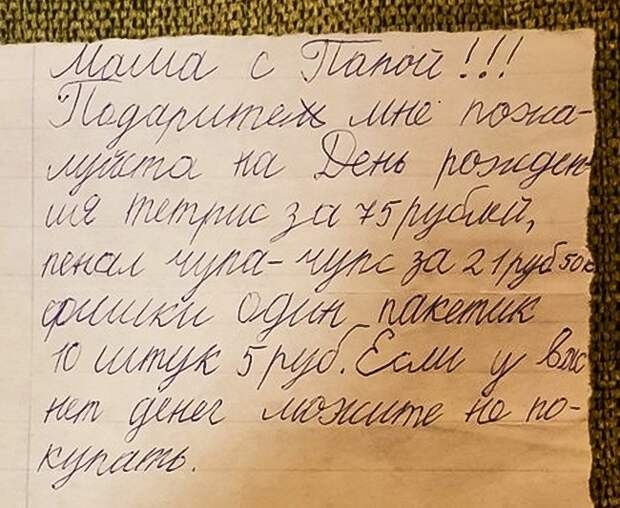 Мама с Папой!!!
Подарите мне пожа-
луйста на День рожден-
ия тетрис за 75 рублей,
пенал чупа-чупс за 21 руб 50 к
фишки один пакетик
10 штук 5 руб. Если у вас
нет денег можите не по-
купать.